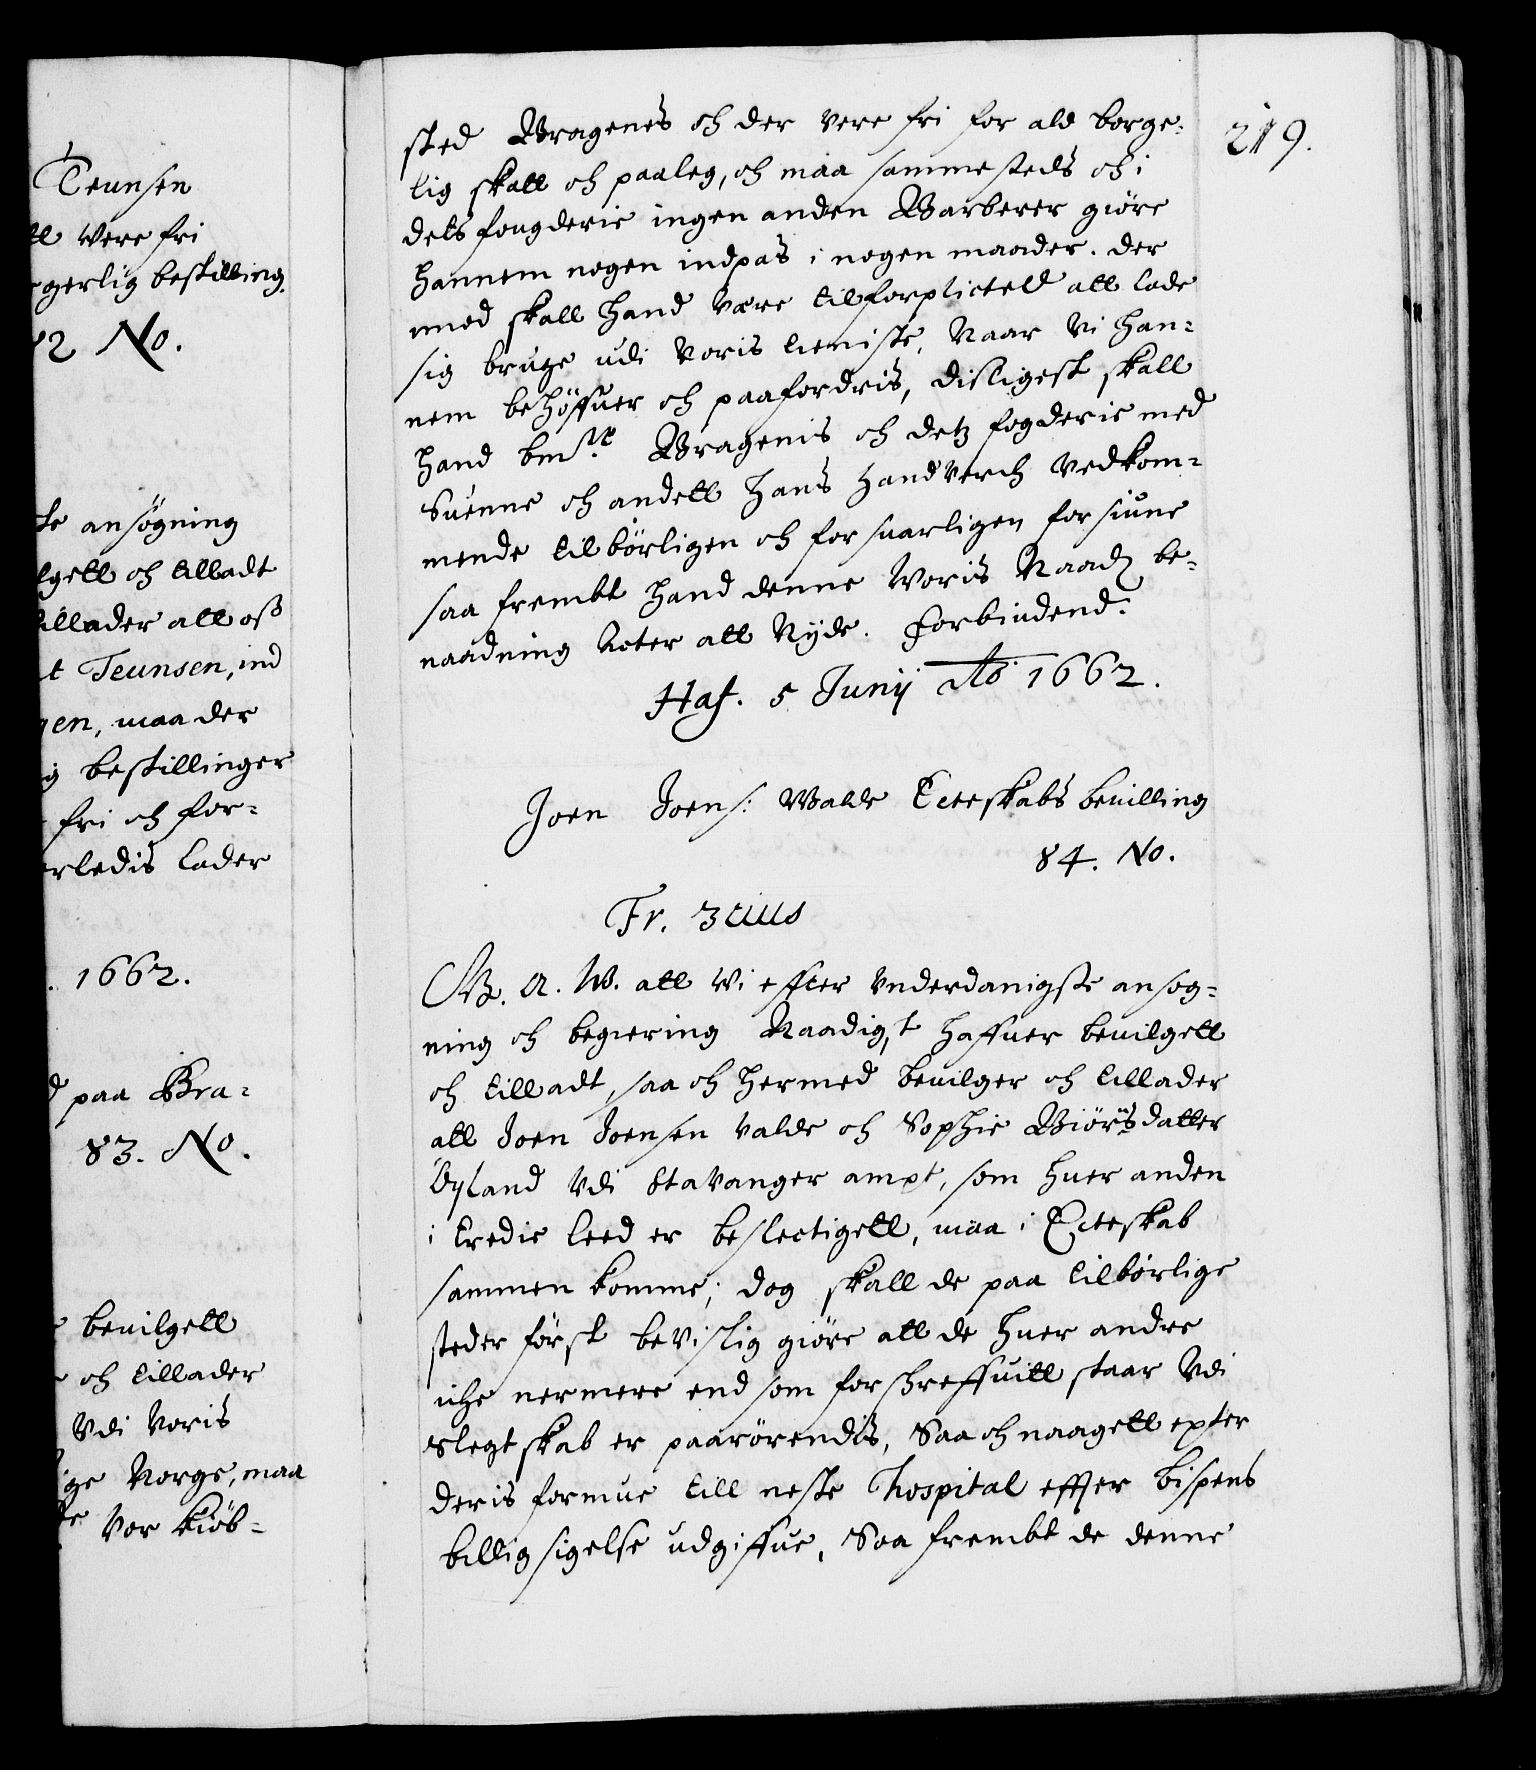 Teunsen
tt Vere fri
gerlig bestilling.
82 No.
te ansøgning
lgett och tilladt
tillader att oss
t Teunsen, ind
gen, maa der
ig bestillinger
fri och for-
erledis lader
. 1662.
d paa Bra-
83. No.
e beuilgett
e och tillader
Vdi Voris
ige Norge, maa
te Vor kiøb-
219.
sted Bragenes och der vere fri for ald borge-
lig skatt och paaleg, och maa sammesteds och i
dets fougderie ingen anden Barberer giøre
hannem nogen indpas i nogen maader. Der
imod skall hand Være tilforplicted att lade
sig bruge udi Voris tieniste, Naar Vi han-
nem behøffuer och paafordris, disligest skall
hand bmt. Bragenis och detz fogderie med
Suenne och andett hans handverch Vedkom-
mende tilbörligen och forsuarligen forsiune
saa frembt hand denne Voris Naads be-
naadning Acter att Nyde. Forbindend:
Haf. 5 Junij Ao 1662.
Joen Joens: Walde Ecteskabs beuilling
84. No.
Fr. 3tius
G. A. W. att Wi effter Vnderdanigste ansøg-
ning och begiering Naadigst haffuer beuilgett
och tilladt, saa och hermed beuilger och tillader
att Joen Joensen Valde och Sophie Biörsdatter
Öyland Vdi Stavanger ampt, som huer anden
i tredie leed er beslectigett, maa i Ecteskab
sammen komme; dog skall de paa tilbørlige
steder først bevislig giøre att de huer andre
iche nermere end som forschreffuitt staar Vdi
Slegtskab er paarörendis, Saa och naagett epter
deris formue till neste Hospital effter bispens
billig sigelse udgiffue, Saa frembt de denne